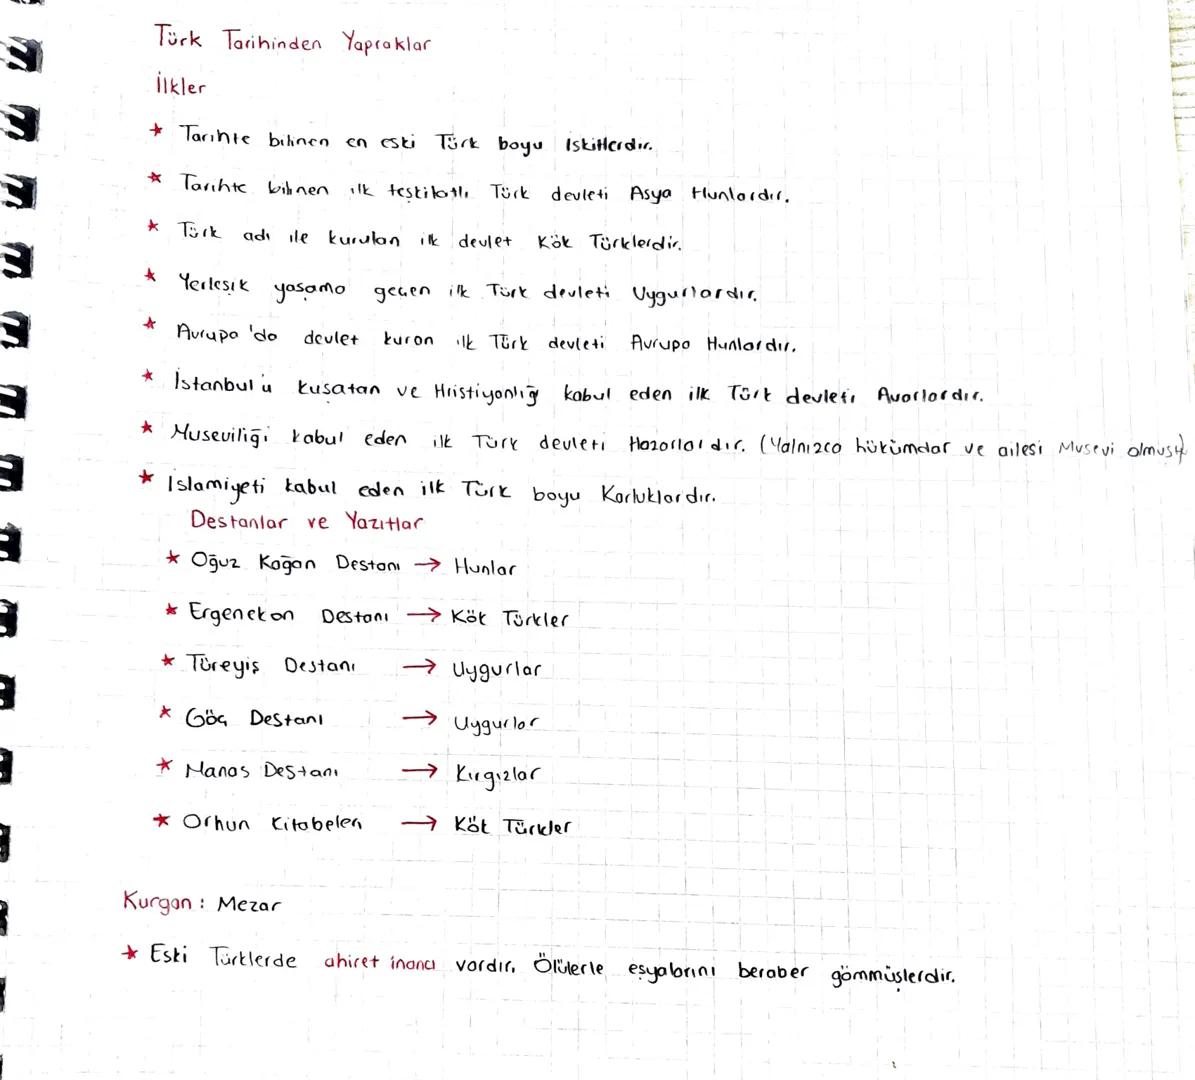 Türk Tarihinden Yapraklar
İlkler
★ Tarihte bilinen en eski Türk boyu İskitlerdir.
★ Tarihte bilinen ilk teşkilatlı Türk devleti Asya Hunlardır.
★ Türk adı ile kurulan ilk devlet Kök Türklerdir.
★ Yerleşik yaşama geçen ilk Türk devleti Uygurlardır.
★ Avrupa'da devlet kuran ilk Türk devleti Avrupa Hunlardır.
★ İstanbul'u kuşatan ve Hristiyanlığ kabul eden ilk Türk devleti Avarlardır.
★ Museviliği kabul eden ilk Türk devleti Hazarlardır. (Yalnızca hükümdar ve ailesi Musevi olmuş)
★ İslamiyeti kabul eden ilk Türk boyu Karluklardır.
Destanlar ve Yazıtlar
★ Oğuz Kağan Destanı → Hunlar
★ Ergenekon Destanı → Kök Türkler
★ Türeyiş Destanı → Uygurlar
★ Göç Destanı → Uygurlar
★ Manas Destanı → Kırgızlar
★ Orhun Kitabeleri → Kök Türkler
Kurgan: Mezar
★ Eski Türklerde ahiret inancı vardır. Ölülerle eşyalarını beraber gömmüşlerdir.